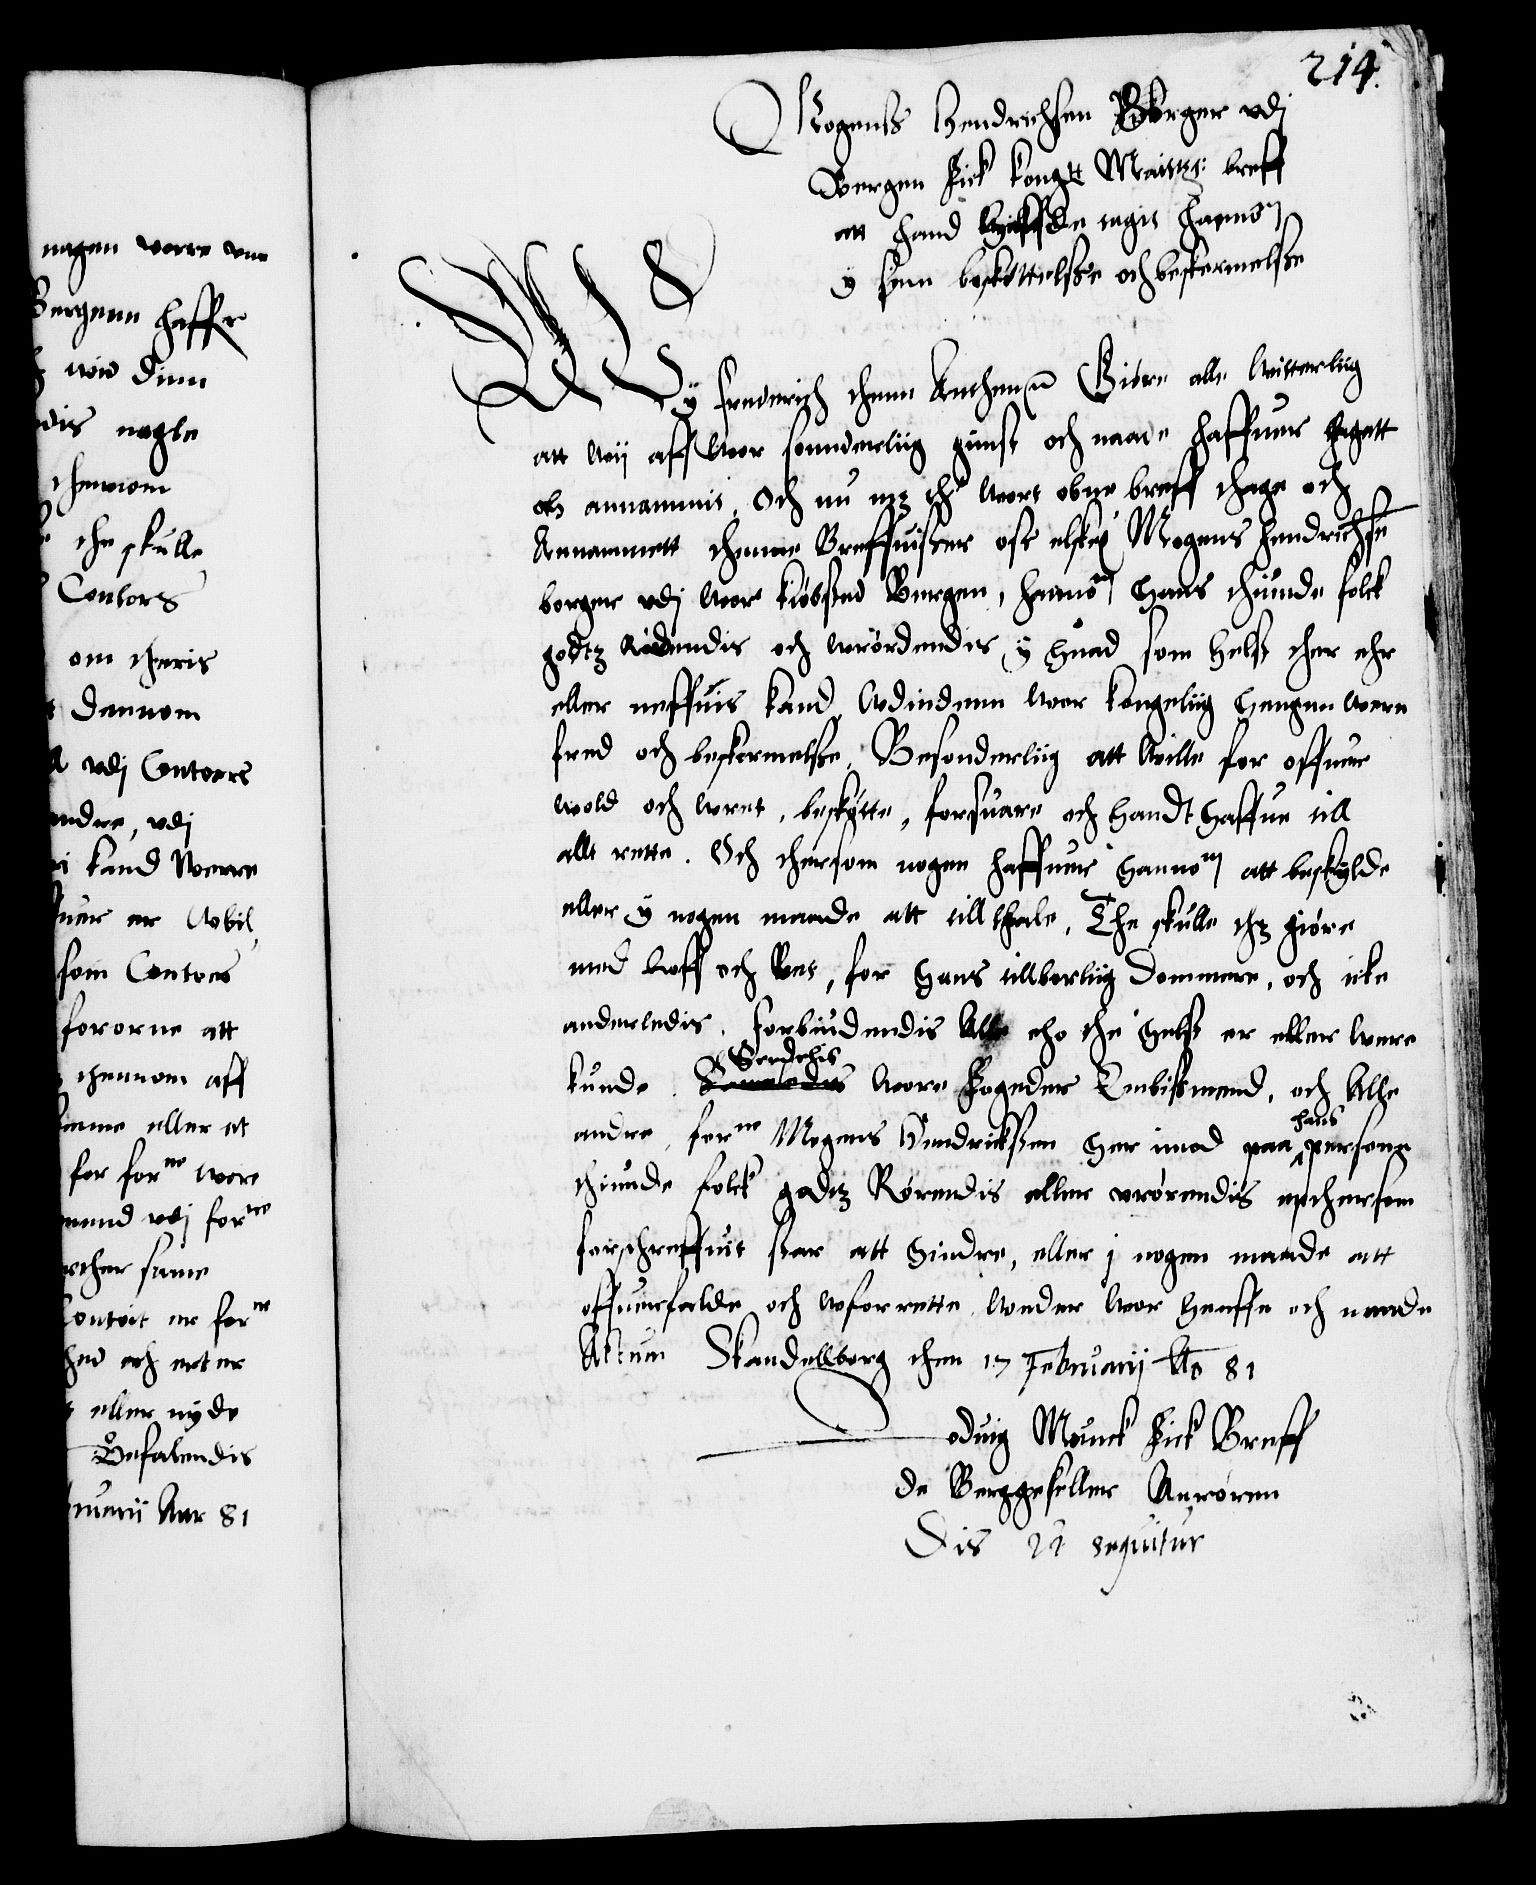 214.
Mogenss Hendrichsen Borger vdj
Bergen Fick kongtt Maitts: breff
att hand haffde tagit hannom
y sinn beskøttelsse och beskermelsse
Wy frederich thenn Anthenn Giøre alle witterliig
att wij aff wor sonnderliig gunst och naade haffuer thagett
och annammit. Och nu mz thz wort obne breff thage och
Annammett thenne Breffuiser oss elskel Mogens hendrichsen
borger vdj wor kiøbsted Bergen, hannom Hans thiunde folck
godtz Rørendis och wrørendis y huad som helst ther ehr
eller neffnis kand Wdindenn wor kongeliig hengnn wern
fred och beskermelsse. Besonderliig att wille for offuer
wold och wret, beskytte, forsuare och handt haffue till
alt rette. Och thersom nogen haffuer hannom att beskylde
eller y nogen maade att till thale, The skulle thz giøre
med low och Ret, for hans tillborliig Dommere, och icke
anderledis. Forbiudendis Alle eho the helst er eller were
kunde. Serdelis wore Fogeder Embitzmend, och Alle
andre, forne Mogens Hendrickssen her imod paa hans persone
thiunde folck godtz Rørendis eller vrørendis epthersom
forschreffuit star att hindre, eller j nogen maade att
offuerfalde och wforrette. Wnder wor heffn och naade
Actum Skandellborg then 17 Februarij Ao 81
Loduig Munck Fick Breff
de Berggeseller Anrøren
Dis ut sequitur
nagen verre vnn
Bergenn haffr
wid dinn
dis nogle
thennom
the skulle
Contors
om theris
dennom
vdj Contoers
andre, vdj
kand werre
uer er Wbil
som Contors
fororne att
thennom aff
inne eller at
for forne wore
mend vdj forne
ther samme
Contoit er forne
hed och ert er
eller nyde
Befalendis
ruarij Aar 81